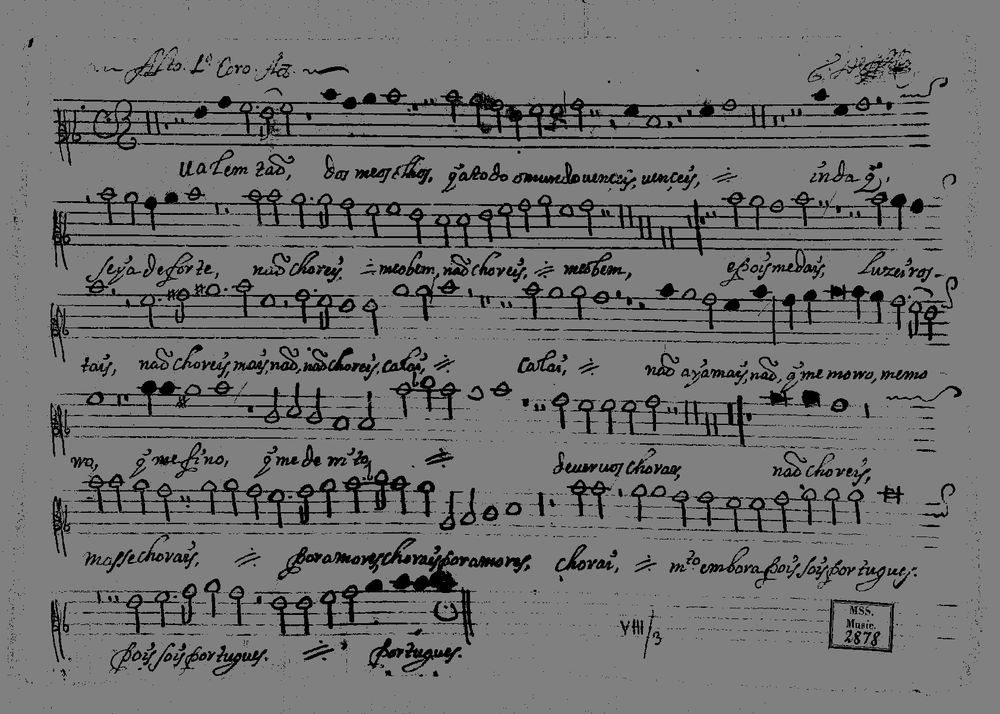 Alto. 1º Coro. A8.
Ualem tão, dos meos olhos, q̃ a todo o mundo uenceis, uenceis, inda q̃
seya de sorte, não choreis, meo bem, não choreis, meo bem, e pois me dais, luzeiros
tais, não choreis mais, não, não choreis, calai, calai, não aya mais, não, q̃ me mowo, memo
wo, q̃ me fino, q̃ me de mto, deueruos chorar, não choreis,
masse chorais, por amores chorais por amores, chorai, mto embora pois sois portugues.
pois sois portugues. portugues.
VIII/3
MSS.
Music.
2878